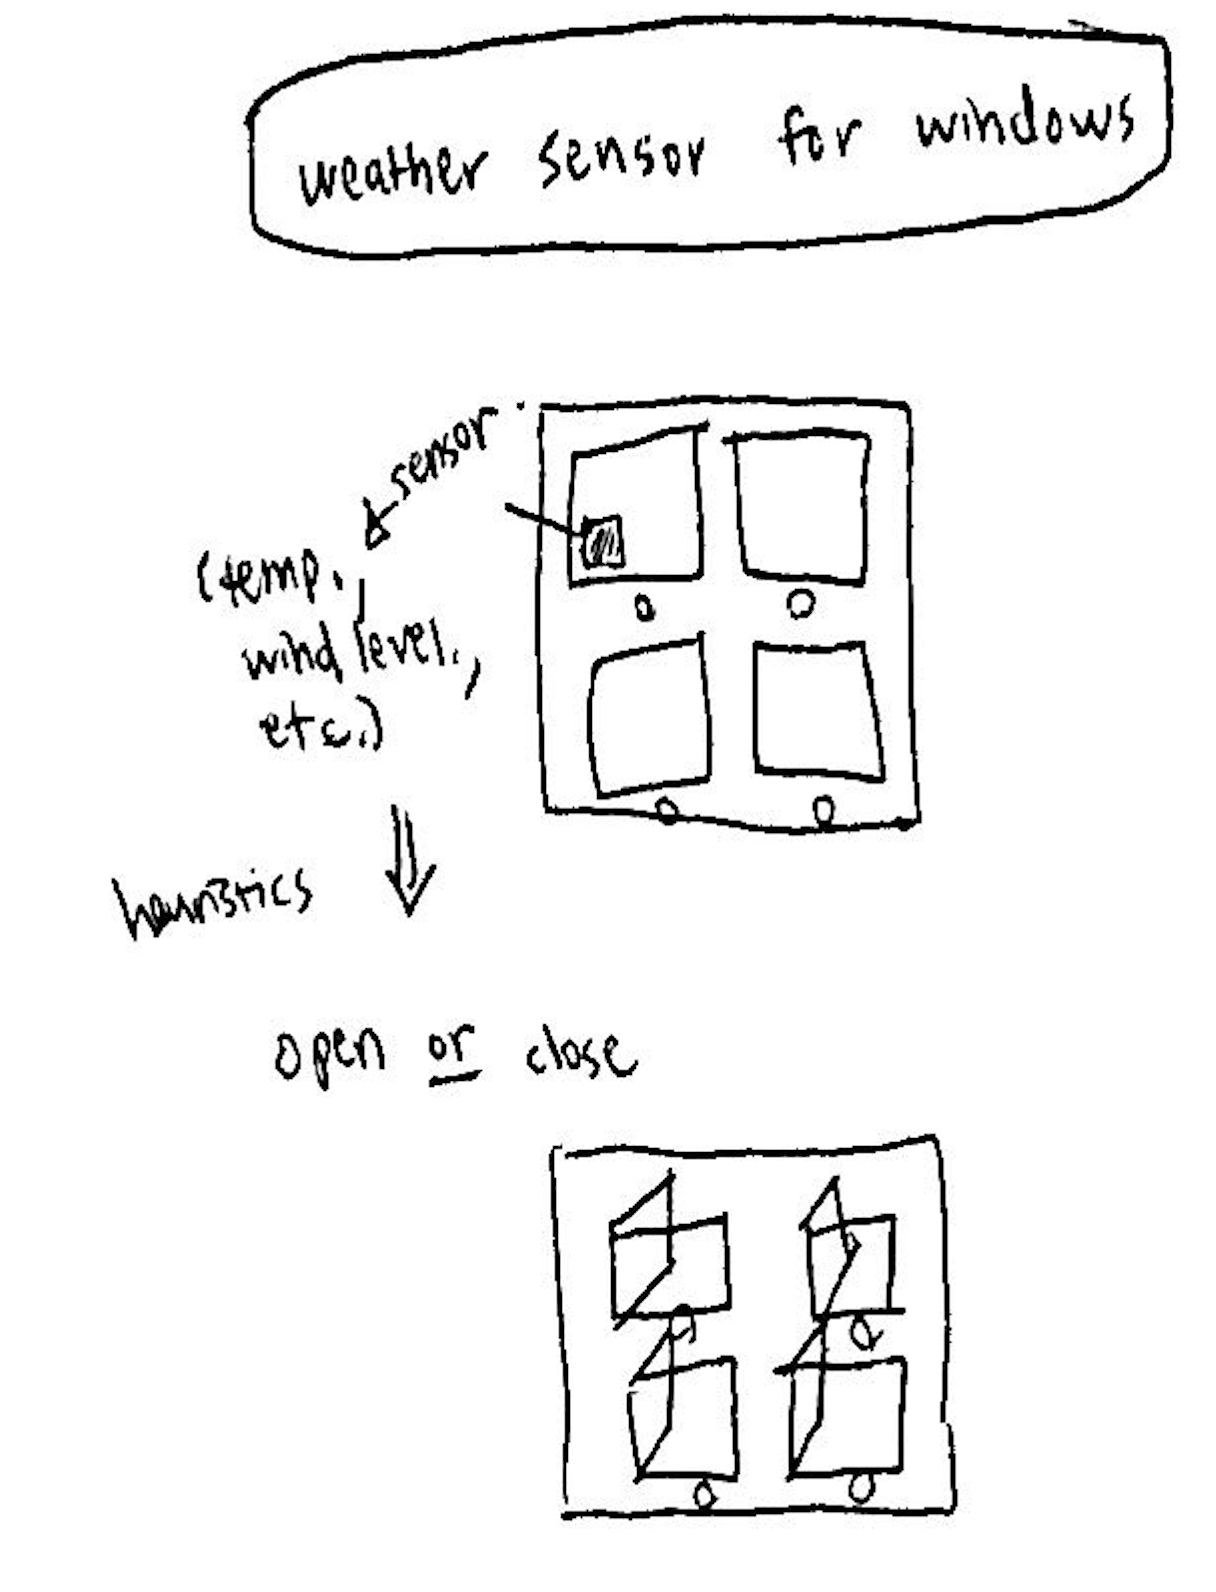 weather sensor for windows
sensor
(temp.,
wind level.,
etc.)
heuristics
open or close